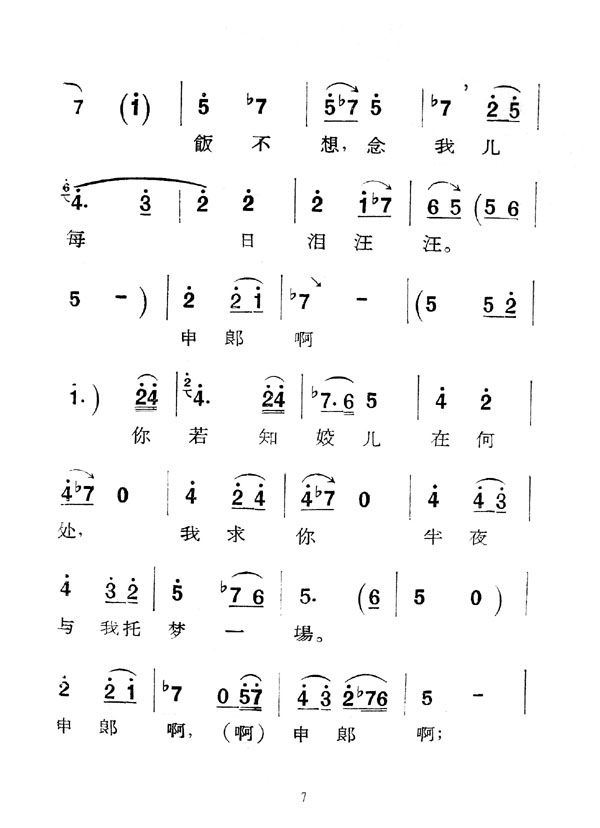 7 (i) | 5 ♭7 | 5♭7 5 | ♭7 ’ 2 5 |
飯不想，念我儿
6 4. 3 | 2 2 | 2 i♭7 | 6 5 (5 6 |
每日泪汪汪。
5 - ) | 2 2 1 | ♭7 - | (5 5 2 |
申郎啊
1. ) 24 | 2 4. 24 | ♭7. 6 5 | 4 2 |
你若知姣儿在何
4♭7 0 | 4 2 4 | 4♭7 0 | 4 4 3 |
处，我求你半夜
4 3 2 | 5 ♭7 6 | 5. (6 | 5 0 ) |
与我托梦一場。
2 2 1 | ♭7 0 57 | 4 3 2♭76 | 5 - |
申郎啊，（啊）申郎啊；
7